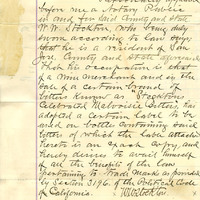 before me a Notary Public
in and for said County and State
W. W. Stockton, who being duly
sworn according to law says
that he is a resident of San
Jose County and State aforesaid
that his occupation is that
of a Wine Merchant and in the
sale of a certain brand of
Bitters known as Stocktons
Celebrated Malvoisie Bitters, has
adopted a certain label to be
used on bottles containing said
bitters of which the label attached
hereto is an exact copy, and
hereby desires to avail himself
of all the benefits of the law
pertaining to Trade Marks as provided
by Section 3196 of the Political Code
of California.